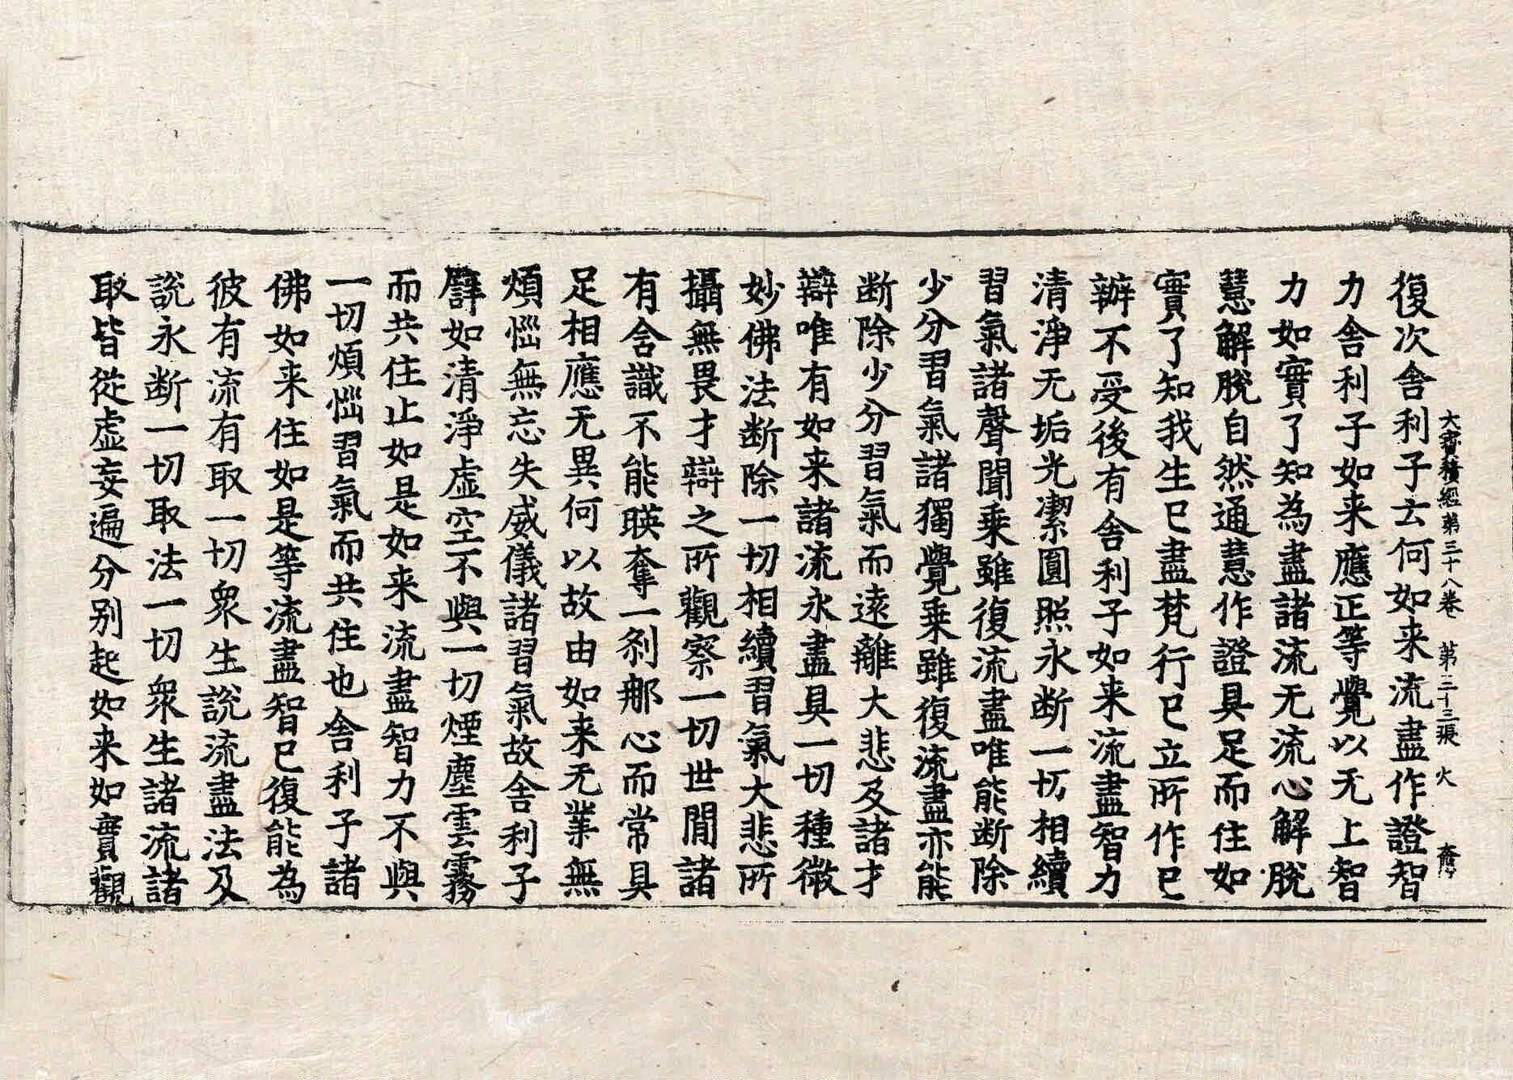 大寳積經第三十八卷 第三十三張 火
復次舍利子云何如来流盡作證智
力舍利子如来應正等覺以无上智
力如實了知為盡諸流无流心解脫
慧解脫自然通慧作證具足而住如
實了知我生已盡梵行已立所作已
辦不受後有舍利子如来流盡智力
清淨无垢光潔圓照永断一切相續
習氣諸聲聞乗雖復流盡唯能断除
少分習氣諸獨覺乗雖復流盡亦能
断除少分習氣而遠離大悲及諸才
辯唯有如来諸流永盡具一切種微
妙佛法断除一切相續習氣大悲所
攝無畏才辯之所觀察一切世間諸
有含識不能暎奪一剎那心而常具
足相應无異何以故由如来无業無
煩惱無忘失威儀諸習氣故舍利子
譬如清淨虛空不與一切煙塵雲霧
而共住止如是如来流盡智力不與
一切煩惱習氣而共住也舍利子諸
佛如来住如是等流盡智已復能為
彼有流有取一切衆生說流盡法及
說永断一切取法一切衆生諸流諸
取皆從虛妄遍分别起如来如實觀